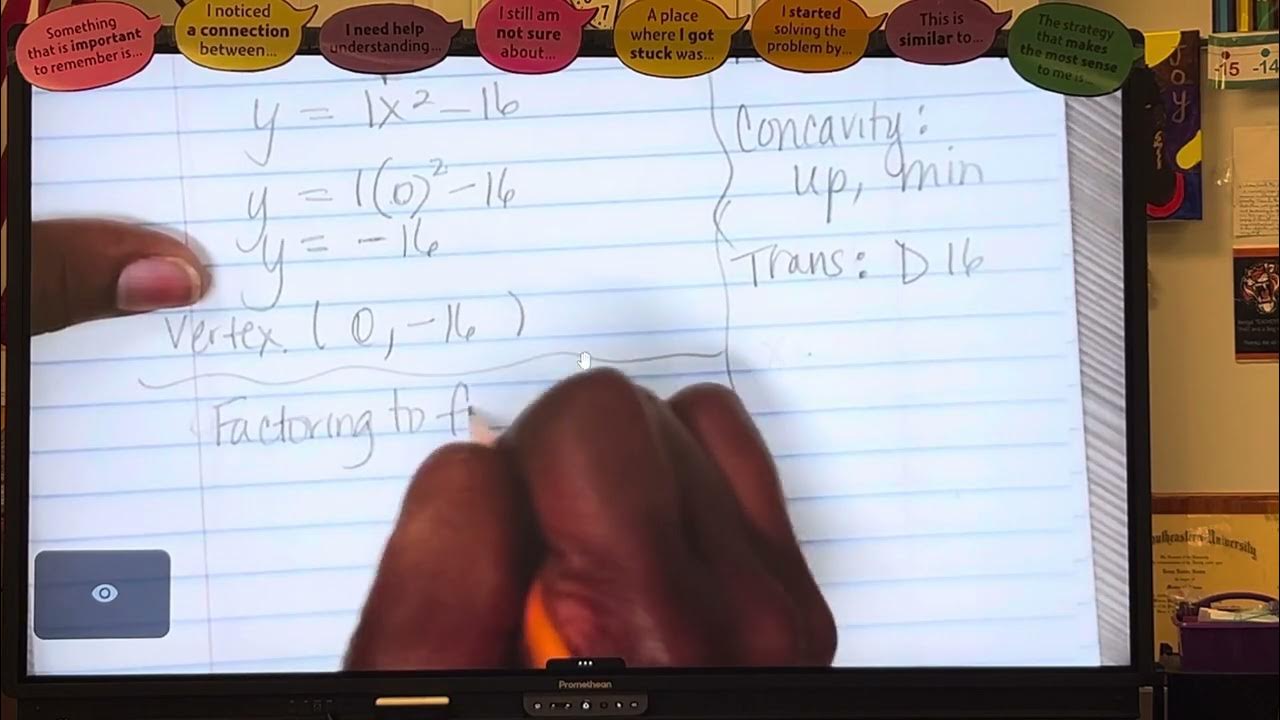 Something
that is important
to remember is...
I noticed
a connection
between...
I need help
understanding...
I still am
not sure
about...
A place
where I got
stuck was...
I started
solving the
problem by...
This is
similar to...
The strategy
that makes
the most sense
to me is...
-15 -14
JOY
y = 1x² - 16
y = 1(0)² - 16
y = -16
Vertex. (0, -16)
Factoring to f
Concavity:
up, min
Trans: D 16
Promethean